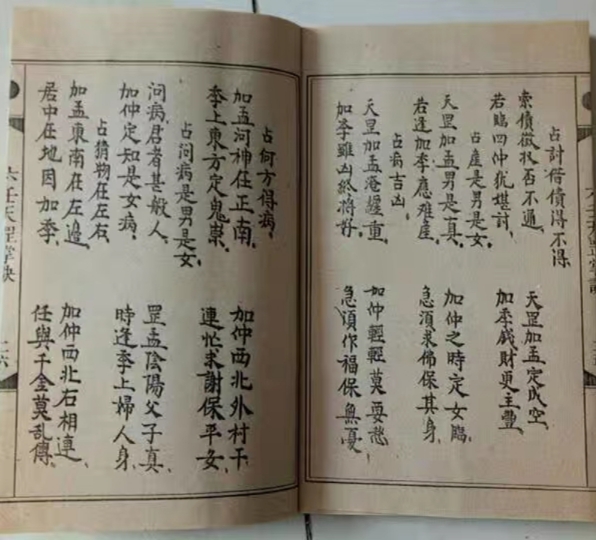 占討借債得不得
索債徵收否不通、天罡加孟定成空、
若臨四仲猶堪討、加季戋財更主豐、
占產是男是女、
天罡加孟男是真、加仲之時定女臨、
若逢加季應难產、急須求佛保其身、
占病吉凶、
天罡加孟淹纏重、加仲輕輕莫要愁、
加季雖凶終將好、急須作福保無憂、
占何方得病、
加孟河神在正南、加仲西北外村干、
季上東方定鬼祟、連忙求謝保平安、
占问病是男是女、
问病君者甚敏人、罡孟陰陽父子真、
加仲定知是女病、時逢季上婦人身、
占猜物在左右、
加孟東南在左邊、加仲西北右相連、
居中在地因加季、任與千金莫乱傳、
六壬天罡掌訣
二六